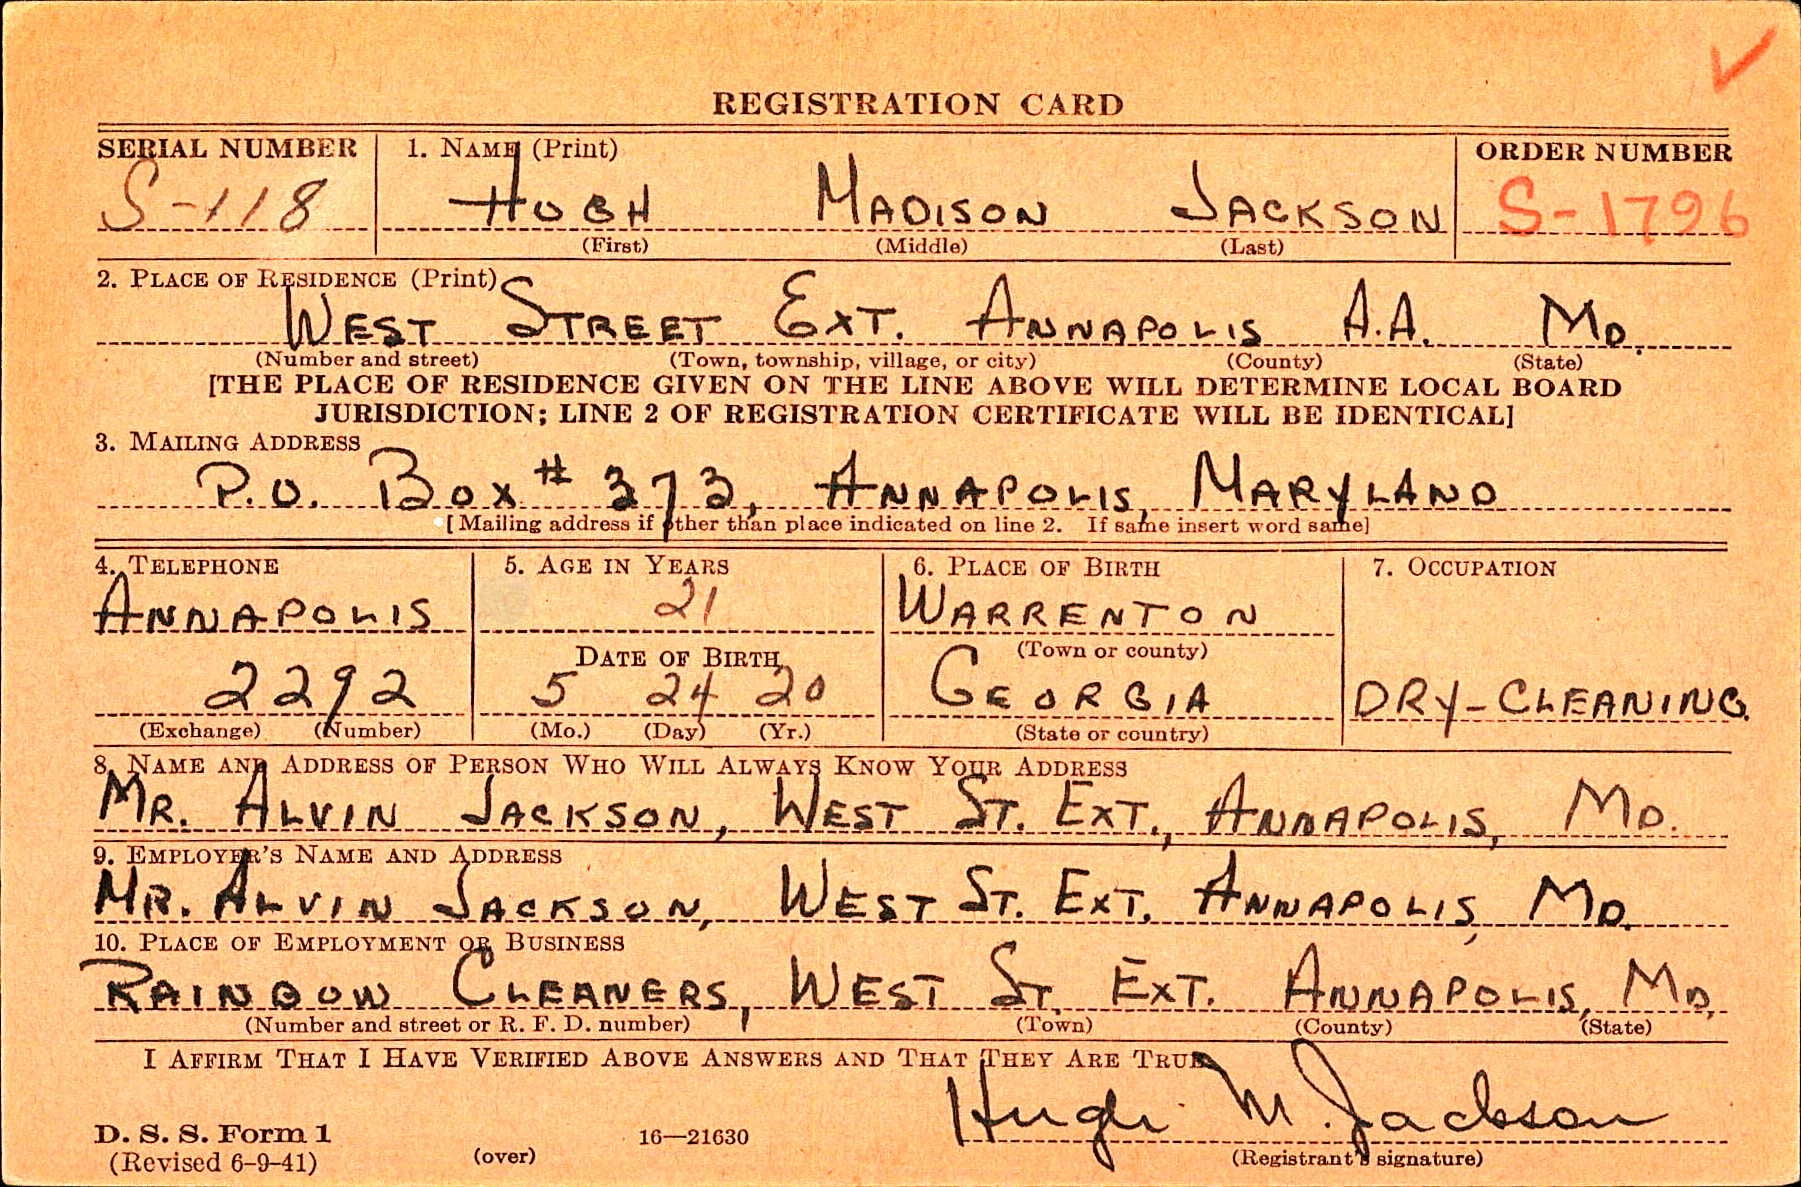 REGISTRATION CARD
SERIAL NUMBER 1. NAME (Print) ORDER NUMBER
S-118 HUGH MADISON JACKSON S-1796
(First) (Middle) (Last)
2. PLACE OF RESIDENCE (Print)
WEST STREET EXT. ANNAPOLIS A.A. MD.
(Number and street) (Town, township, village, or city) (County) (State)
[THE PLACE OF RESIDENCE GIVEN ON THE LINE ABOVE WILL DETERMINE LOCAL BOARD
JURISDICTION; LINE 2 OF REGISTRATION CERTIFICATE WILL BE IDENTICAL]
3. MAILING ADDRESS
P.O. BOX # 373, ANNAPOLIS, MARYLAND
[Mailing address if other than place indicated on line 2. If same insert word same]
4. TELEPHONE 5. AGE IN YEARS 6. PLACE OF BIRTH 7. OCCUPATION
ANNAPOLIS 21 WARRENTON
DATE OF BIRTH (Town or county)
2292 5 24 20 GEORGIA DRY-CLEANING.
(Exchange) (Number) (Mo.) (Day) (Yr.) (State or country)
8. NAME AND ADDRESS OF PERSON WHO WILL ALWAYS KNOW YOUR ADDRESS
MR. ALVIN JACKSON, WEST ST. EXT., ANNAPOLIS, MD.
9. EMPLOYER'S NAME AND ADDRESS
MR. ALVIN JACKSON, WEST ST. EXT. ANNAPOLIS, MD.
10. PLACE OF EMPLOYMENT OR BUSINESS
RAINBOW CLEANERS, WEST ST. EXT. ANNAPOLIS, MD.
(Number and street or R. F. D. number) (Town) (County) (State)
I AFFIRM THAT I HAVE VERIFIED ABOVE ANSWERS AND THAT THEY ARE TRUE.
Hugh M. Jackson
D. S. S. Form 1 16—21630
(Revised 6-9-41) (over) (Registrant's signature)